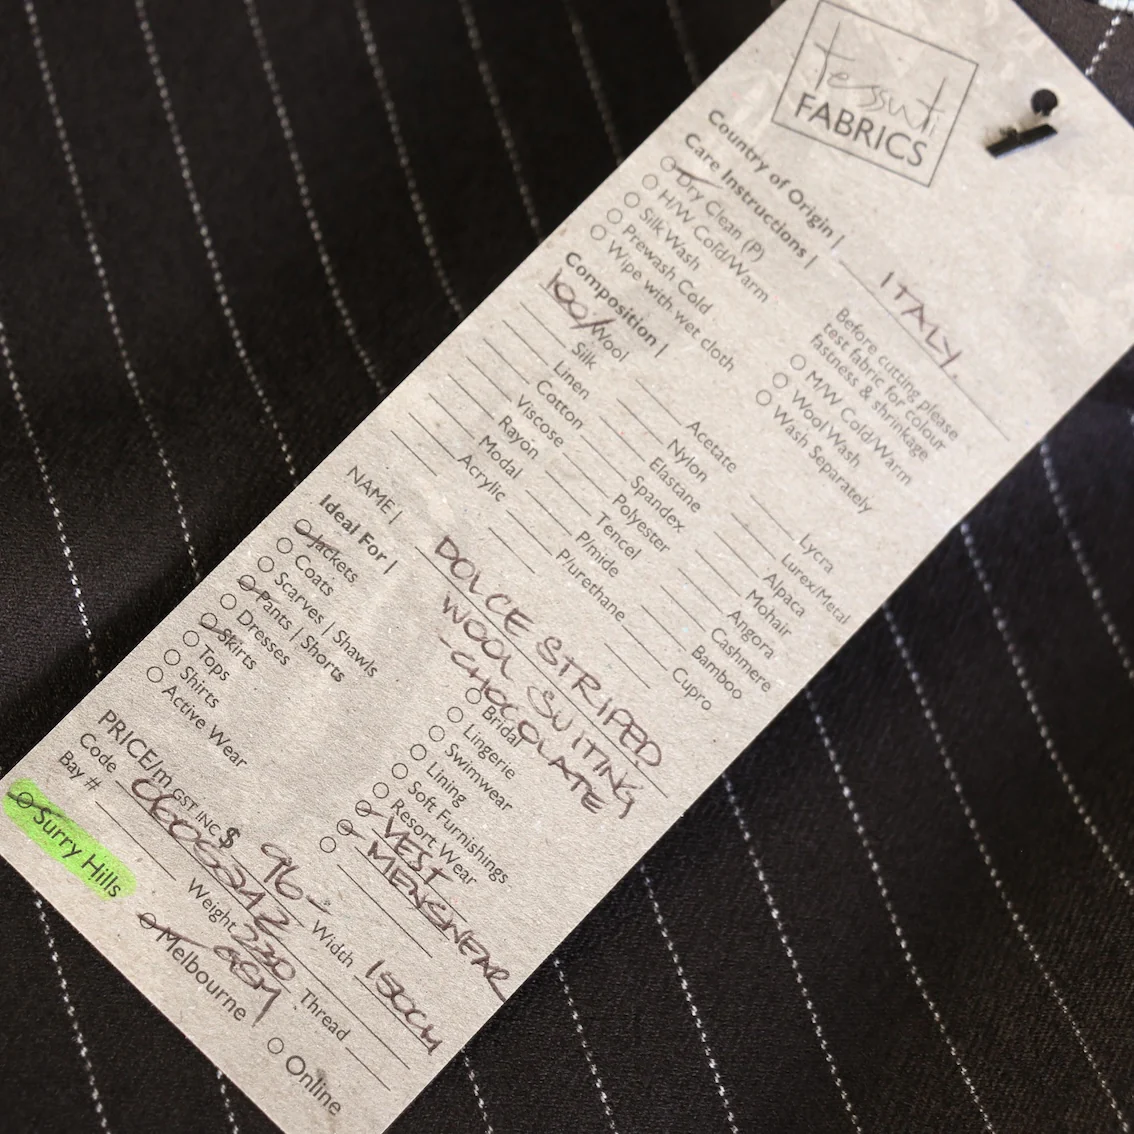 tessuti
FABRICS
Country of Origin | ITALY.
Care Instructions |
Dry Clean (P)
H/W Cold/Warm
Silk Wash
Prewash Cold
Wipe with wet cloth
Before cutting please
test fabric for colour
fastness & shrinkage
M/W Cold/Warm
Wool Wash
Wash Separately
Composition |
100/ Wool
Silk
Linen
Cotton
Viscose
Rayon
Modal
Acrylic
Acetate
Nylon
Elastane
Spandex
Polyester
Tencel
P/mide
P/urethane
Lycra
Lurex/Metal
Alpaca
Mohair
Angora
Cashmere
Bamboo
Cupro
NAME | DOLCE STRIPED
WOOL SUITING
- CHOCOLATE
Ideal For |
Jackets
Coats
Scarves | Shawls
Pants | Shorts
Dresses
Skirts
Tops
Shirts
Active Wear
Bridal
Lingerie
Swimwear
Lining
Soft Furnishings
Resort Wear
VEST
MENSWEAR
PRICE/m GST INC $ 96- Width 150CM
Code
Bay # Weight 230 GSM Thread
Surry Hills Melbourne Online